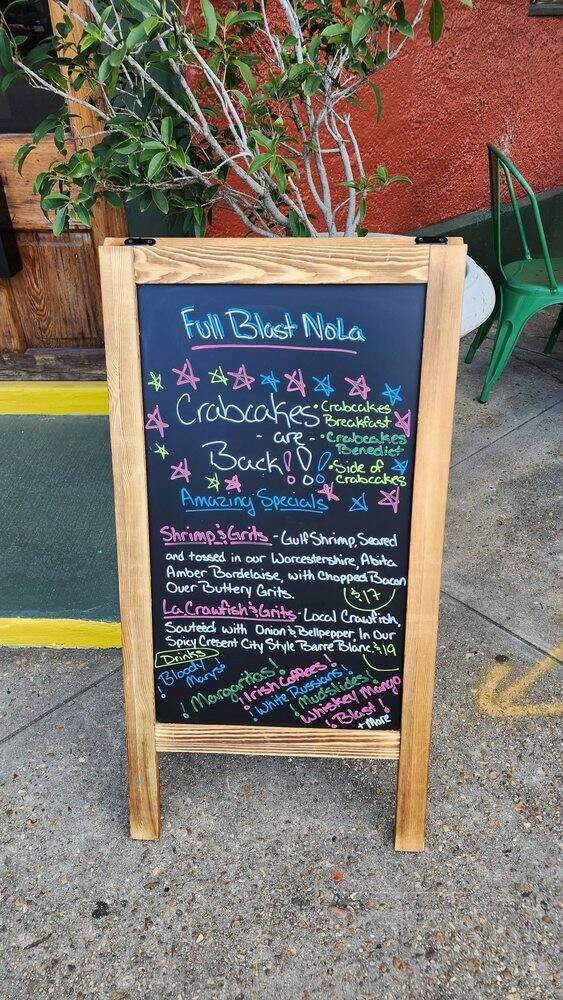 Full Blast NoLa
Crabcakes
- are -
Back!!!
• Crabcakes
Breakfast
• Crabcakes
Benedict
• Side of
crabcakes
Amazing Specials
Shrimp & Grits - Gulf Shrimp, Seared
and tossed in our Worcestershire, Abita
Amber Bordelaise, with Chopped Bacon
Over Buttery Grits. $17
La Crawfish & Grits - Local Crawfish,
Sauteéd with Onion & Bellpepper, In Our
Spicy Cresent City Style Barre Blanc $19
Drinks
¡Bloody
Marys!
¡Margaritas!
¡Irish Coffees!
¡White Russians!
¡Mudslides!
Whiskey Mango
¡Blast!
+ More